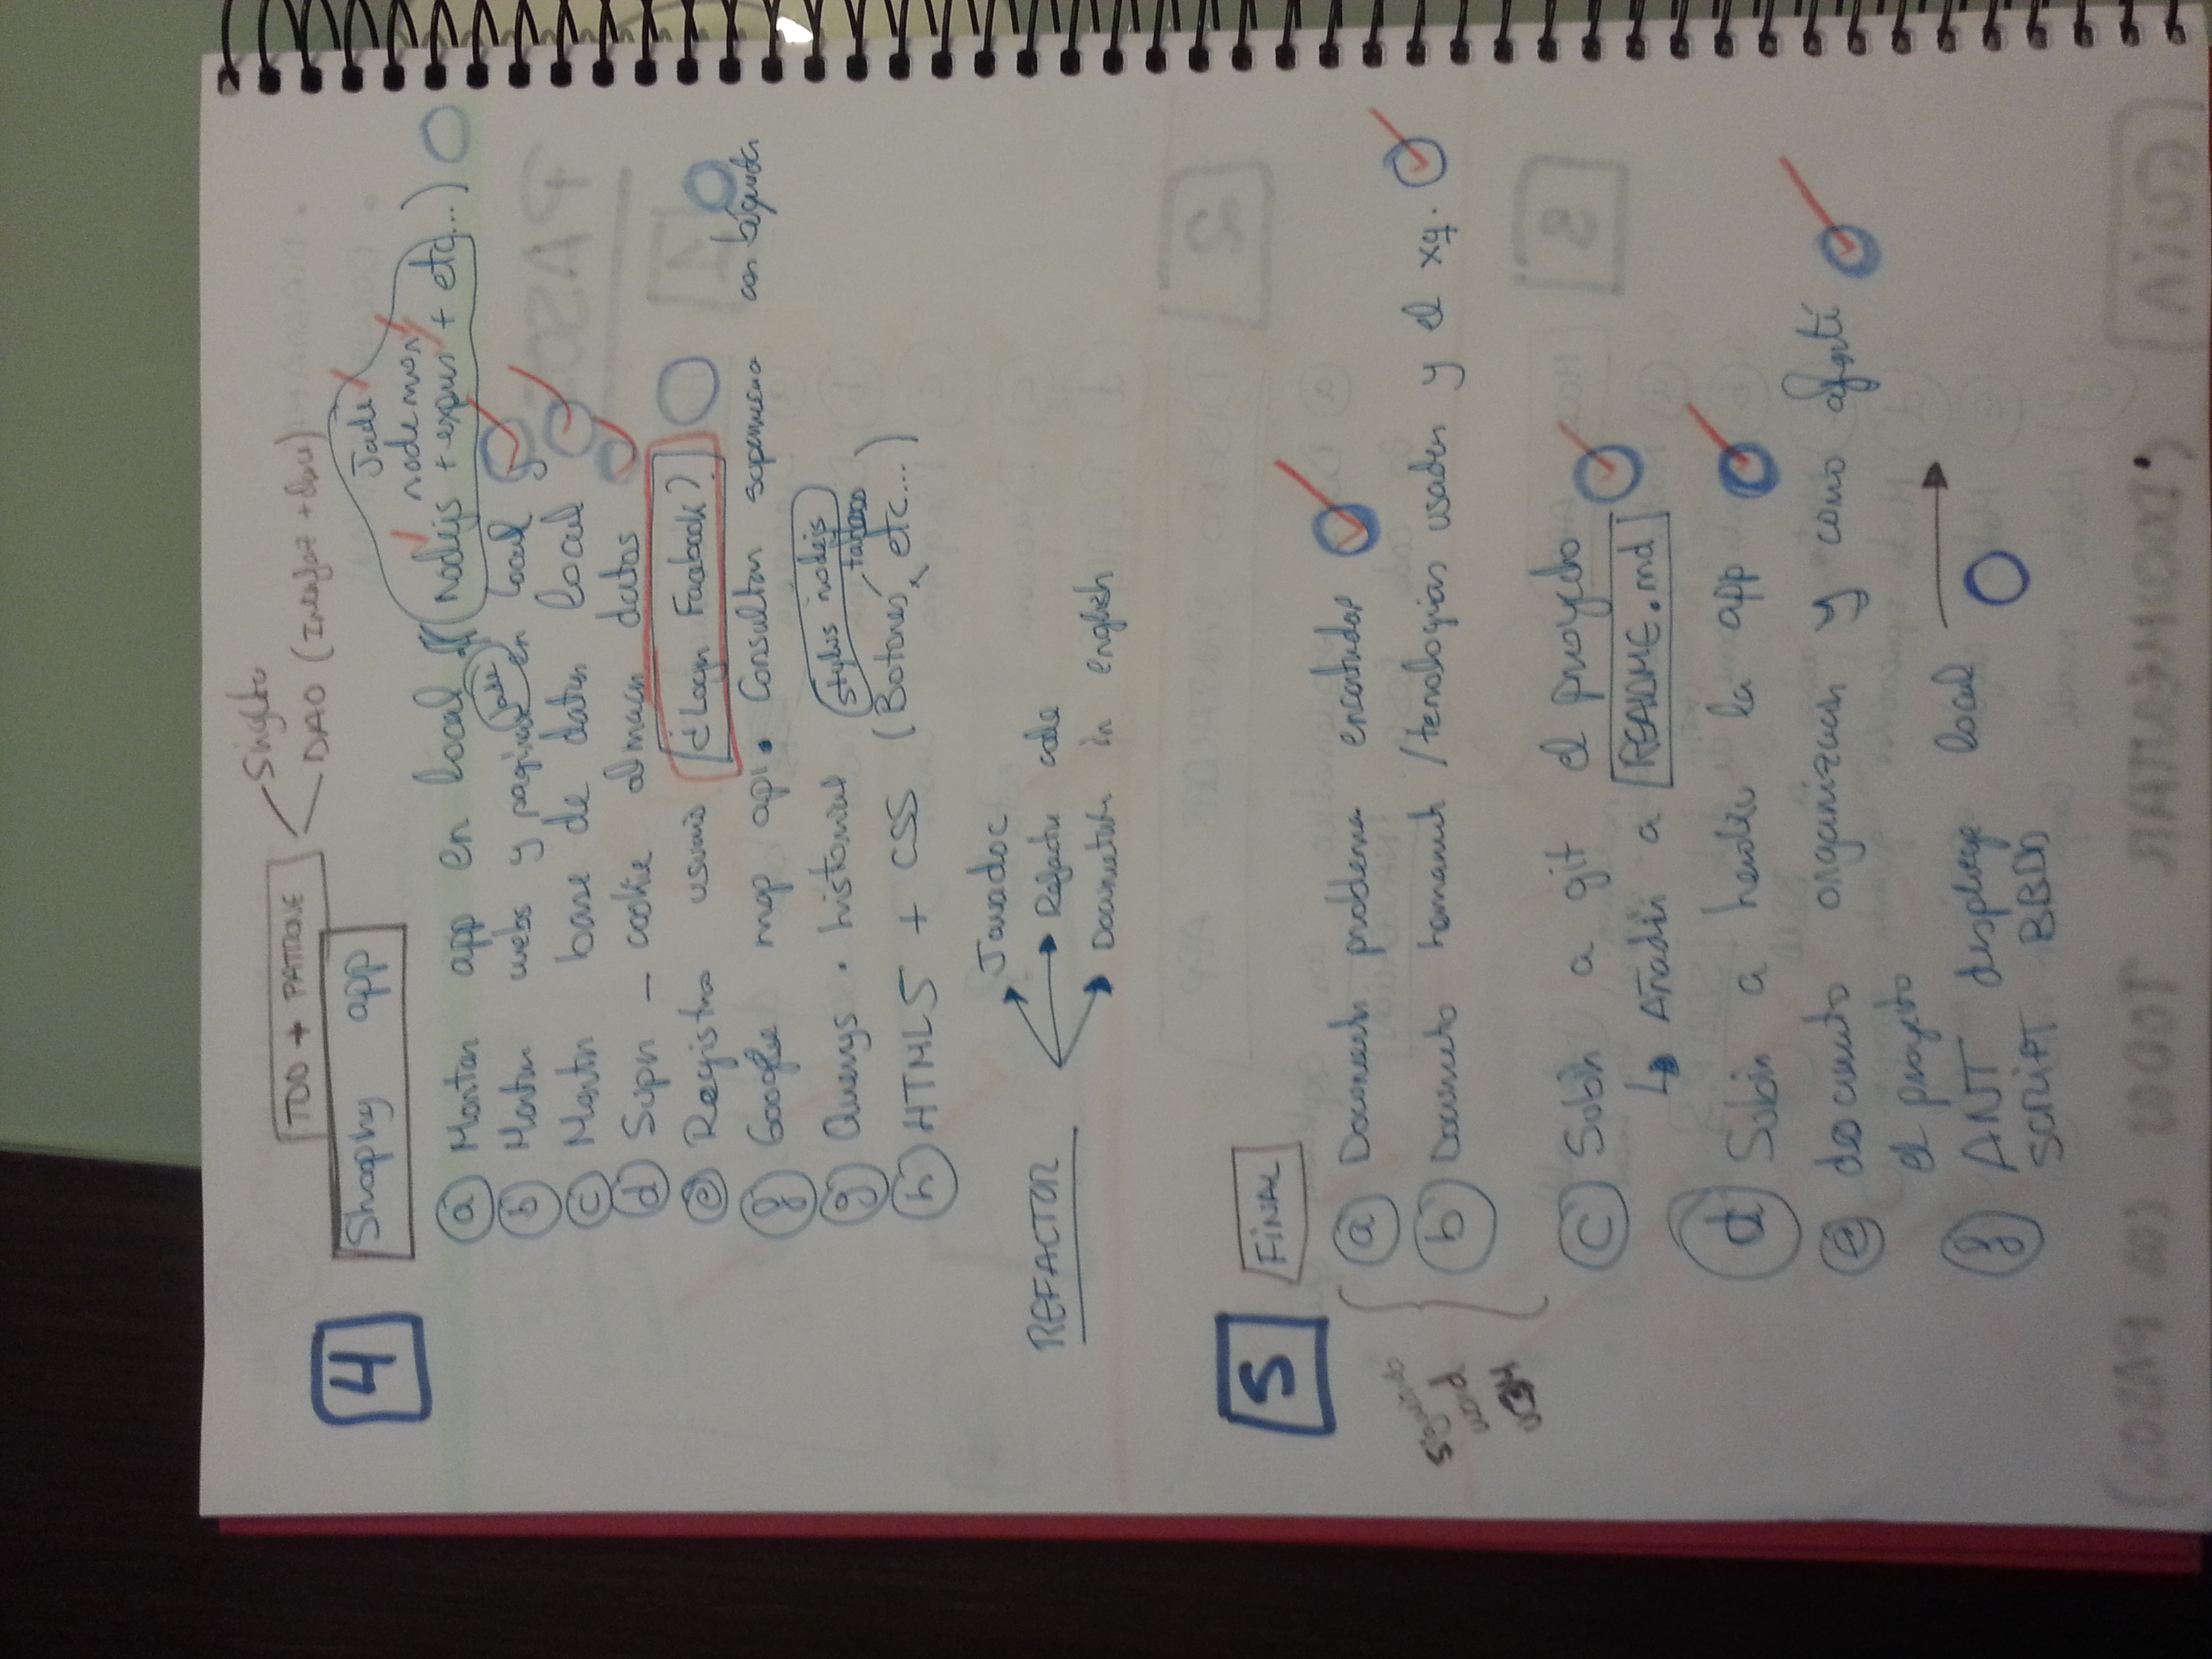 TDD + PATTONE
Singleto
DAO (Interfaz + dau)
4
Shopping app
Jade
nodemon
a Montar app en local (nodejs + expres + etc...)
b Montar webs y paginas en local
Jade
c Montar base de datos local
d Sign - cookie almacen datos
e Registro usuario ¿Login Facebook?
f Google map api. Consultar supermercado con búsqueda
g Querys. historial
stylus nodejs
h HTML5 + CSS (Botones, etc...)
REFACTOR
Javadoc
Refactor code
Documentate in english
5
FINAL
siguiendo
word
UC3M
a Documento problemas encontrados
b Documento herramient / tenologias usadas y el xq.
c Subir a git el proyecto
Añadir a README.md
d Subir a heroku la app
e documento organizacion y como afronté
el proyecto
f ANT despliegue local
SCRIPT BBDD